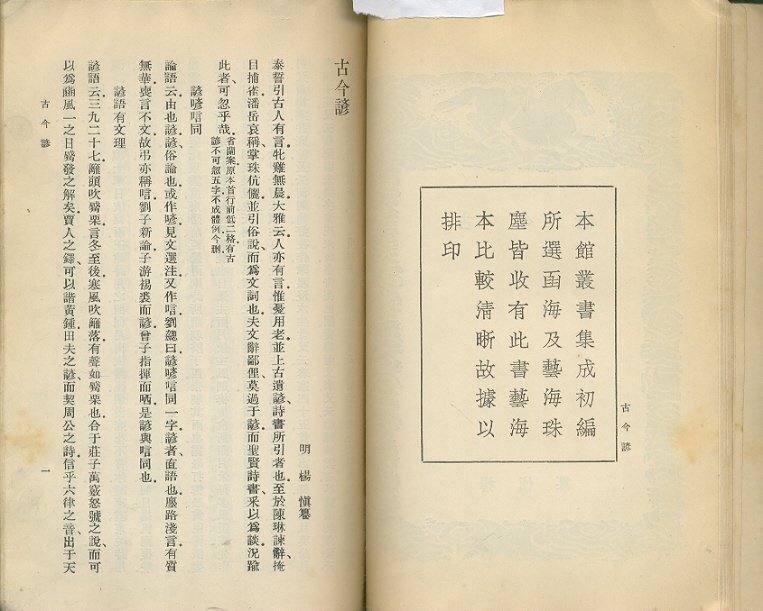 本館叢書集成初編
所選函海及藝海珠
塵皆收有此書藝海
本比較清晰故據以
排印
古今諺
古今諺
明 楊慎纂
泰誓引古人有言牝雞無晨大雅云人亦有言惟憂用老並上古遺諺詩書所引者也至於陳琳諫辭掩
目捕雀潘岳哀稱掌珠伉儷並引俗說而爲文詞也夫文辭鄙俚莫過于諺而聖賢詩書采以爲談況踰
此者可忽乎哉
省蘭案原本首行前低二格有古
諺不可忽五字不成體例今刪
諺喭唁同
論語云由也諺諺俗論也或作喭見文選注又作唁劉勰曰諺喭唁同一字諺者直語也廛路淺言有質
無華喪言不文故弔亦稱唁劉子新論子游裼裘而諺曾子指揮而哂是諺與唁同也
諺語有文理
諺語云三九二十七籬頭吹觱栗言冬至後寒風吹籬落有聲如觱栗也合于莊子萬竅怒號之說而可
以爲豳風一之日觱發之解矣賈人之鐸可以諧黃鍾田夫之諺而契周公之詩信乎六律之音出于天
古今諺
一